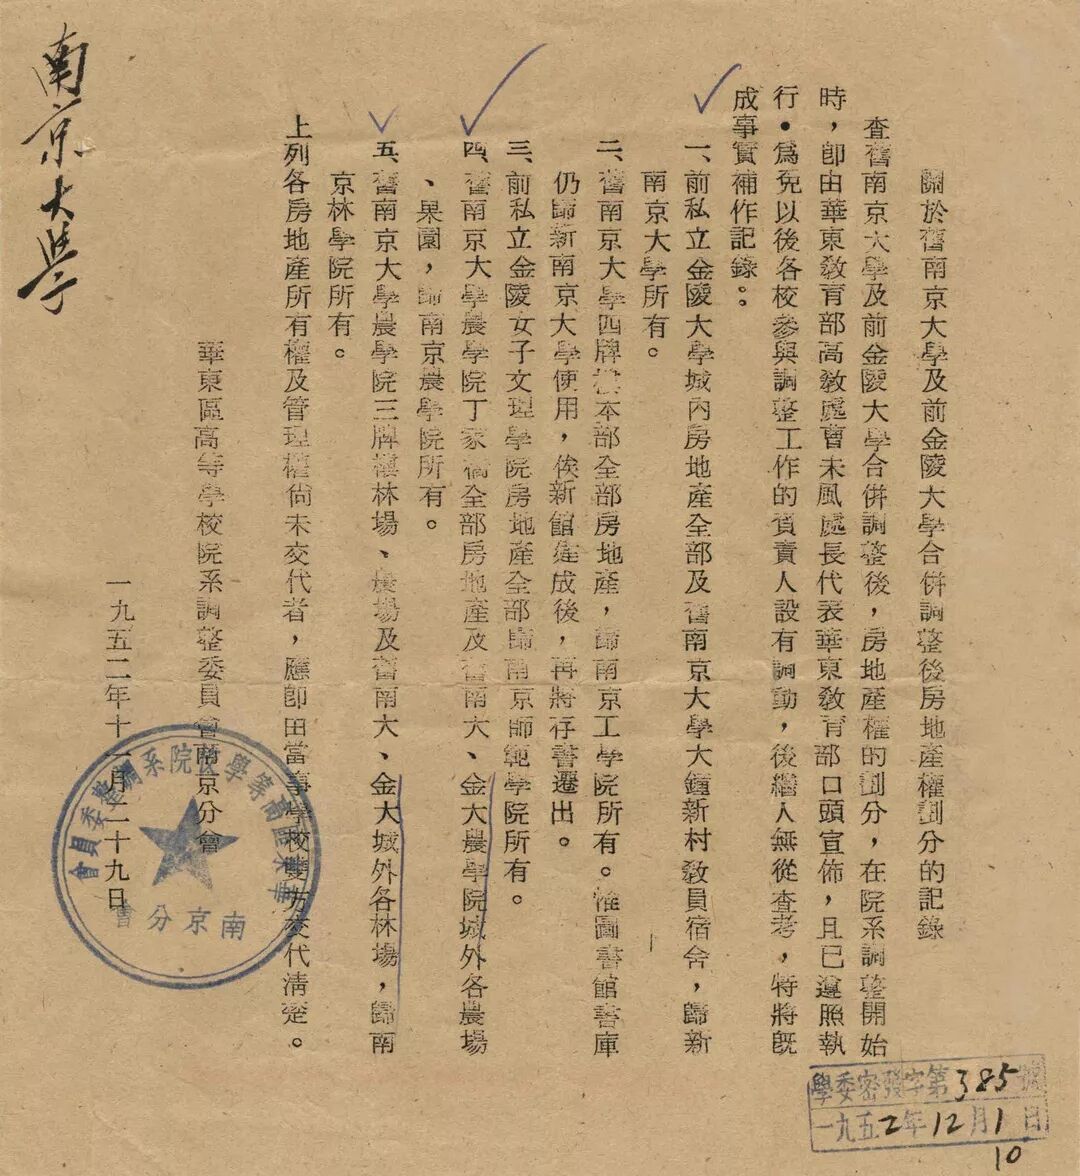 關於舊南京大學及前金陵大學合併調整後房地產權劃分的記錄
查舊南京大學及前金陵大學合併調整後，房地產權的劃分，在院系調整開始
時，卽由華東敎育部高敎處曹未風處長代表華東敎育部口頭宣佈，且已遵照執
行。爲免以後各校參與調整工作的負責人設有調動，後繼人無從查考，特將旣
成事實補作記錄。。
一、前私立金陵大學城內房地產全部及舊南京大學大鐘新村敎員宿舍，歸新
南京大學所有。
二、舊南京大學四牌樓本部全部房地產，歸南京工學院所有。惟圖書館書庫
仍歸新南京大學使用，俟新館建成後，再將存書遷出。
三、前私立金陵女子文理學院房地產全部歸南京師範學院所有。
四、舊南京大學農學院丁家橋全部房地產及舊南大、金大農學院城外各農場
、果園，歸南京農學院所有。
五、舊南京大學農學院三牌樓林場、農場及舊南大、金大城外各林場，歸南
京林學院所有。
上列各房地產所有權及管理權尙未交代者，應卽由當事學校雙方交代淸楚。
華東區高等學校院系調整委員會南京分會
一九五二年十一月二十九日
南京大學
華東區高等學校院系調整委員會
南京分會
學委密發字第385號
一九五2年12月1日
10